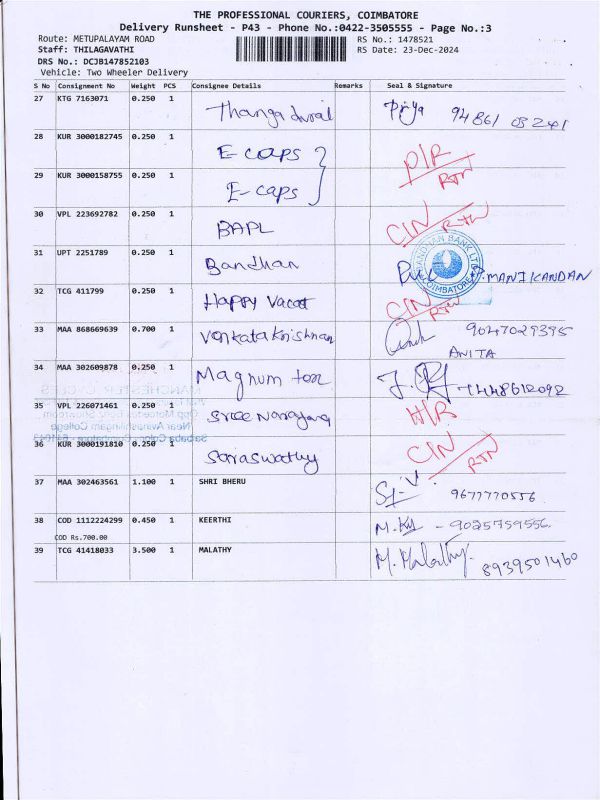 THE PROFESSIONAL COURIERS, COIMBATORE
Delivery Runsheet - P43 - Phone No.:0422-3505555 - Page No.:3
Route: METUPALAYAM ROAD RS No.: 1478521
Staff: THILAGAVATHI RS Date: 23-Dec-2024
DRS No.: DCJB147852103
Vehicle: Two Wheeler Delivery
S No Consignment No Weight PCS Consignee Details Remarks Seal & Signature
27 KTG 7163071 0.250 1 Thanga durai Priya 94861 03241
28 KUR 3000182745 0.250 1 E-caps D/R RTN
29 KUR 3000158755 0.250 1 E-caps
30 VPL 223692782 0.250 1 BAPL CIN RTN
31 UPT 2251789 0.250 1 Bandhan MANIKANDAN
BANDHAN BANK LTD COIMBATORE
32 TCG 411799 0.250 1 Happy CIN RTN
33 MAA 868669639 0.700 1 Venkata Krishnan 9047029395
ANITA
34 MAA 302609878 0.250 1 Magnum
35 VPL 226071461 0.250 1 Sree Narayana
36 KUR 3000191810 0.250 1 Saraswathy CIN RTN
37 MAA 302463561 1.100 1 SHRI BHERU 9677770556
38 COD 1112224299 0.450 1 KEERTHI 9025759556
COD Rs.700.00
39 TCG 41418033 3.500 1 MALATHY M. Malathy 8939501460